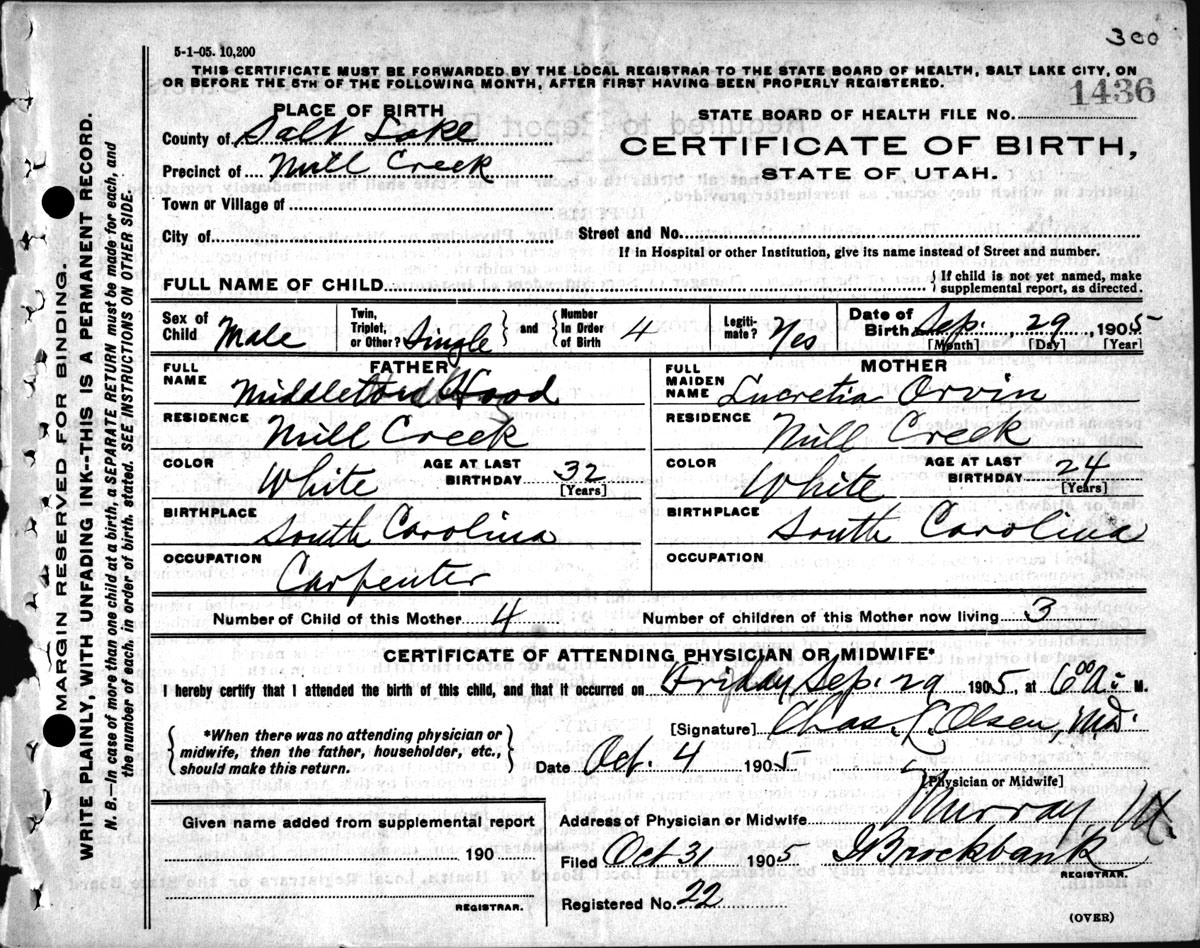 5-1-05. 10,200
300
THIS CERTIFICATE MUST BE FORWARDED BY THE LOCAL REGISTRAR TO THE STATE BOARD OF HEALTH, SALT LAKE CITY, ON
OR BEFORE THE 5TH OF THE FOLLOWING MONTH, AFTER FIRST HAVING BEEN PROPERLY REGISTERED.
1436
PLACE OF BIRTH
STATE BOARD OF HEALTH FILE No.
County of Salt Lake
CERTIFICATE OF BIRTH,
Precinct of Mill Creek
STATE OF UTAH.
Town or Village of
City of
Street and No.
If in Hospital or other Institution, give its name instead of Street and number.
FULL NAME OF CHILD
If child is not yet named, make
supplemental report, as directed.
Sex of Child Male
Twin, Triplet, or Other? Single
and
Number In Order of Birth 4
Legiti-mate? Yes
Date of Birth Sep. 29, 1905
[Month] [Day] [Year]
FATHER
MOTHER
FULL NAME Middleton Hood
FULL MAIDEN NAME Lucretia Orvin
RESIDENCE Mill Creek
RESIDENCE Mill Creek
COLOR White AGE AT LAST BIRTHDAY 32 [Years]
COLOR White AGE AT LAST BIRTHDAY 24 [Years]
BIRTHPLACE South Carolina
BIRTHPLACE South Carolina
OCCUPATION Carpenter
OCCUPATION
Number of Child of this Mother 4
Number of children of this Mother now living 3
CERTIFICATE OF ATTENDING PHYSICIAN OR MIDWIFE*
I hereby certify that I attended the birth of this child, and that it occurred on Friday Sep. 29 1905, at 6 00 A. M.
*When there was no attending physician or
midwife, then the father, householder, etc.,
should make this return.
[Signature] Chas. L. Olsen, M.D.
Date Oct. 4 1905
[Physician or Midwife]
Given name added from supplemental report
190
REGISTRAR.
Address of Physician or Midwife Murray, Ut
Filed Oct 31 1905 Brockbank
REGISTRAR.
Registered No. 22
(OVER)
MARGIN RESERVED FOR BINDING.
WRITE PLAINLY, WITH UNFADING INK--THIS IS A PERMANENT RECORD.
N. B.—In case of more than one child at a birth, a SEPARATE RETURN must be made for each, and
the number of each, in order of birth, stated. SEE INSTRUCTIONS ON OTHER SIDE.